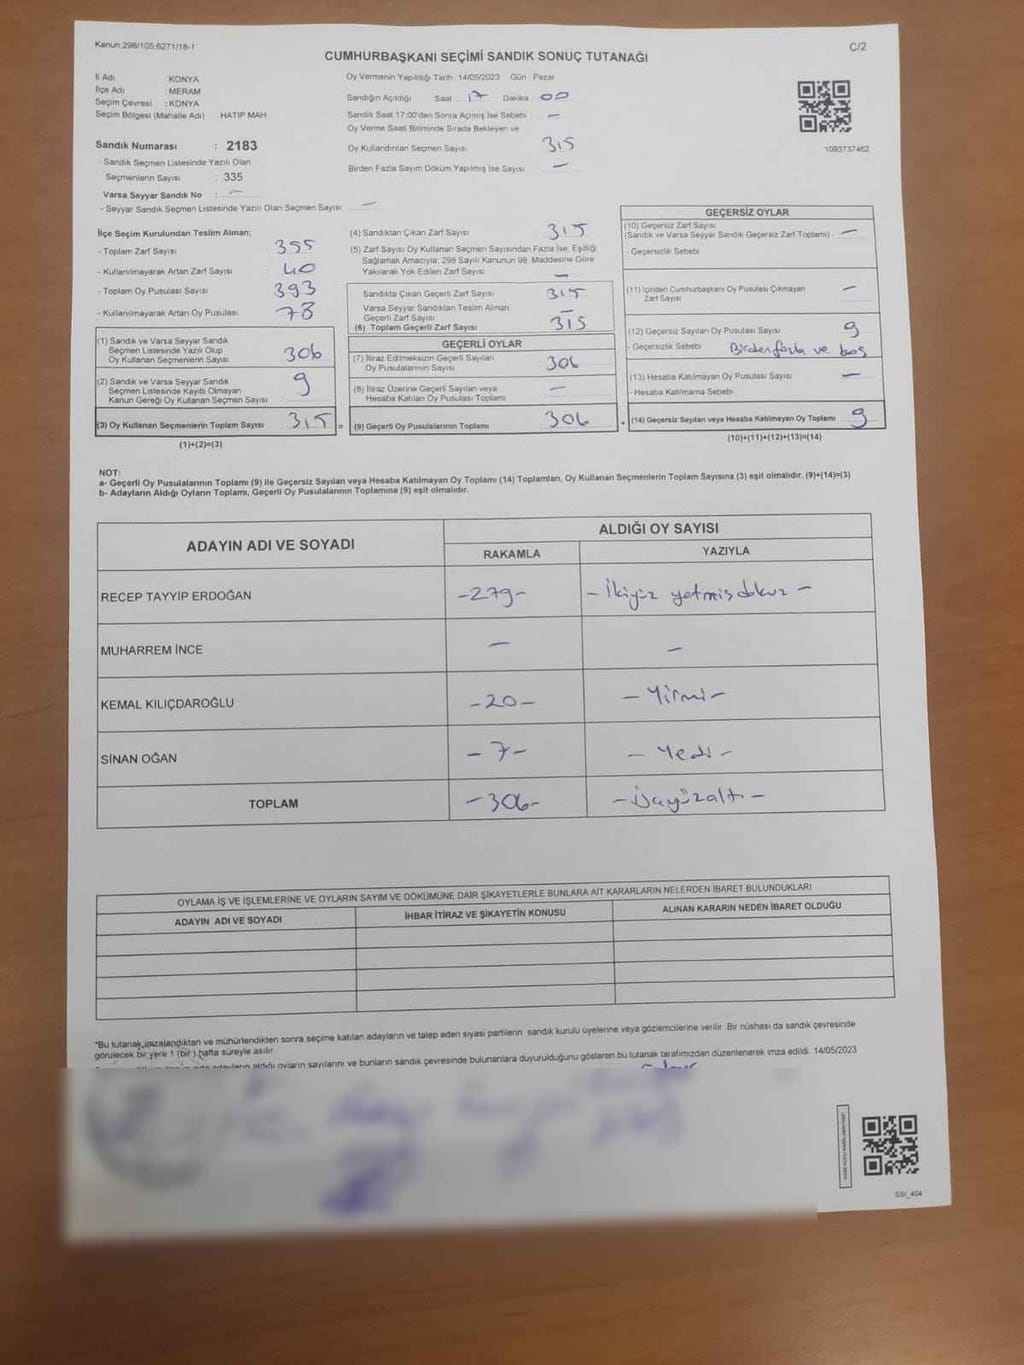 Kanun:298/105;6271/18-1
C/2
CUMHURBAŞKANI SEÇİMİ SANDIK SONUÇ TUTANAĞI
İl Adı : KONYA
İlçe Adı : MERAM
Seçim Çevresi : KONYA
Seçim Bölgesi (Mahalle Adı) HATIP MAH
Sandık Numarası : 2183
- Sandık Seçmen Listesinde Yazılı Olan
Seçmenlerin Sayısı : 335
Varsa Seyyar Sandık No : —
- Seyyar Sandık Seçmen Listesinde Yazılı Olan Seçmen Sayısı : —
Oy Vermenin Yapıldığı Tarih 14/05/2023 Gün : Pazar
Sandığın Açıldığı Saat : 17 Dakika : 00
Sandık Saat 17:00'den Sonra Açılmış İse Sebebi : —
Oy Verme Saati Bitiminde Sırada Bekleyen ve
Oy Kullandırılan Seçmen Sayısı 315
Birden Fazla Sayım Döküm Yapılmış İse Sayısı —
1093737462
İlçe Seçim Kurulundan Teslim Alınan;
- Toplam Zarf Sayısı 355
- Kullanılmayarak Artan Zarf Sayısı 40
- Toplam Oy Pusulası Sayısı 393
- Kullanılmayarak Artan Oy Pusulası 78
(1) Sandık ve Varsa Seyyar Sandık
Seçmen Listesinde Yazılı Olup
Oy Kullanan Seçmenlerin Sayısı 306
(2) Sandık ve Varsa Seyyar Sandık
Seçmen Listesinde Kayıtlı Olmayan
Kanun Gereği Oy Kullanan Seçmen Sayısı 9
(3) Oy Kullanan Seçmenlerin Toplam Sayısı 315 =
(1)+(2)=(3)
(4) Sandıktan Çıkan Zarf Sayısı 315
(5) Zarf Sayısı Oy Kullanan Seçmen Sayısından Fazla İse, Eşitliği
Sağlamak Amacıyla; 298 Sayılı Kanunun 98. Maddesine Göre
Yakılarak Yok Edilen Zarf Sayısı —
Sandıkta Çıkan Geçerli Zarf Sayısı 315
Varsa Seyyar Sandıktan Teslim Alınan
Geçerli Zarf Sayısı —
(6) Toplam Geçerli Zarf Sayısı 315
GEÇERLİ OYLAR
(7) İtiraz Edilmeksizin Geçerli Sayılan
Oy Pusulalarının Sayısı 306
(8) İtiraz Üzerine Geçerli Sayılan veya
Hesaba Katılan Oy Pusulası Toplamı —
(9) Geçerli Oy Pusulalarının Toplamı 306 +
GEÇERSİZ OYLAR
(10) Geçersiz Zarf Sayısı
(Sandık ve Varsa Seyyar Sandık Geçersiz Zarf Toplamı) —
- Geçersizlik Sebebi
(11) İçinden Cumhurbaşkanı Oy Pusulası Çıkmayan
Zarf Sayısı —
(12) Geçersiz Sayılan Oy Pusulası Sayısı 9
- Geçersizlik Sebebi Birden fazla ve boş
(13) Hesaba Katılmayan Oy Pusulası Sayısı —
- Hesaba Katılmama Sebebi
(14) Geçersiz Sayılan veya Hesaba Katılmayan Oy Toplamı 9
(10)+(11)+(12)+(13)=(14)
NOT:
a- Geçerli Oy Pusulalarının Toplamı (9) ile Geçersiz Sayılan veya Hesaba Katılmayan Oy Toplamı (14) Toplamları, Oy Kullanan Seçmenlerin Toplam Sayısına (3) eşit olmalıdır. (9)+(14)=(3)
b- Adayların Aldığı Oyların Toplamı, Geçerli Oy Pusulalarının Toplamına (9) eşit olmalıdır.
ADAYIN ADI VE SOYADI
ALDIĞI OY SAYISI
RAKAMLA YAZIYLA
RECEP TAYYİP ERDOĞAN -279- - İkiyüz yetmişdokuz -
MUHARREM İNCE — —
KEMAL KILIÇDAROĞLU -20- - Yirmi -
SİNAN OĞAN -7- - Yedi -
TOPLAM -306- - Üçyüzaltı -
OYLAMA İŞ VE İŞLEMLERİNE VE OYLARIN SAYIM VE DÖKÜMÜNE DAİR ŞİKAYETLERLE BUNLARA AİT KARARLARIN NELERDEN İBARET BULUNDUKLARI
ADAYIN ADI VE SOYADI İHBAR İTİRAZ VE ŞİKAYETİN KONUSU ALINAN KARARIN NEDEN İBARET OLDUĞU
"Bu tutanak,imzalandıktan ve mühürlendikten sonra seçime katılan adayların ve talep eden siyasi partilerin sandık kurulu üyelerine veya gözlemcilerine verilir .Bir nüshası da sandık çevresinde
görülecek bir yere 1 (bir ) hafta süreyle asılır.
adayların aldığı oyların sayılarını ve bunların sandık çevresinde bulunanlara duyurulduğunu gösteren bu tutanak tarafımızdan düzenlenerek imza edildi. 14/05/2023
SSI_404